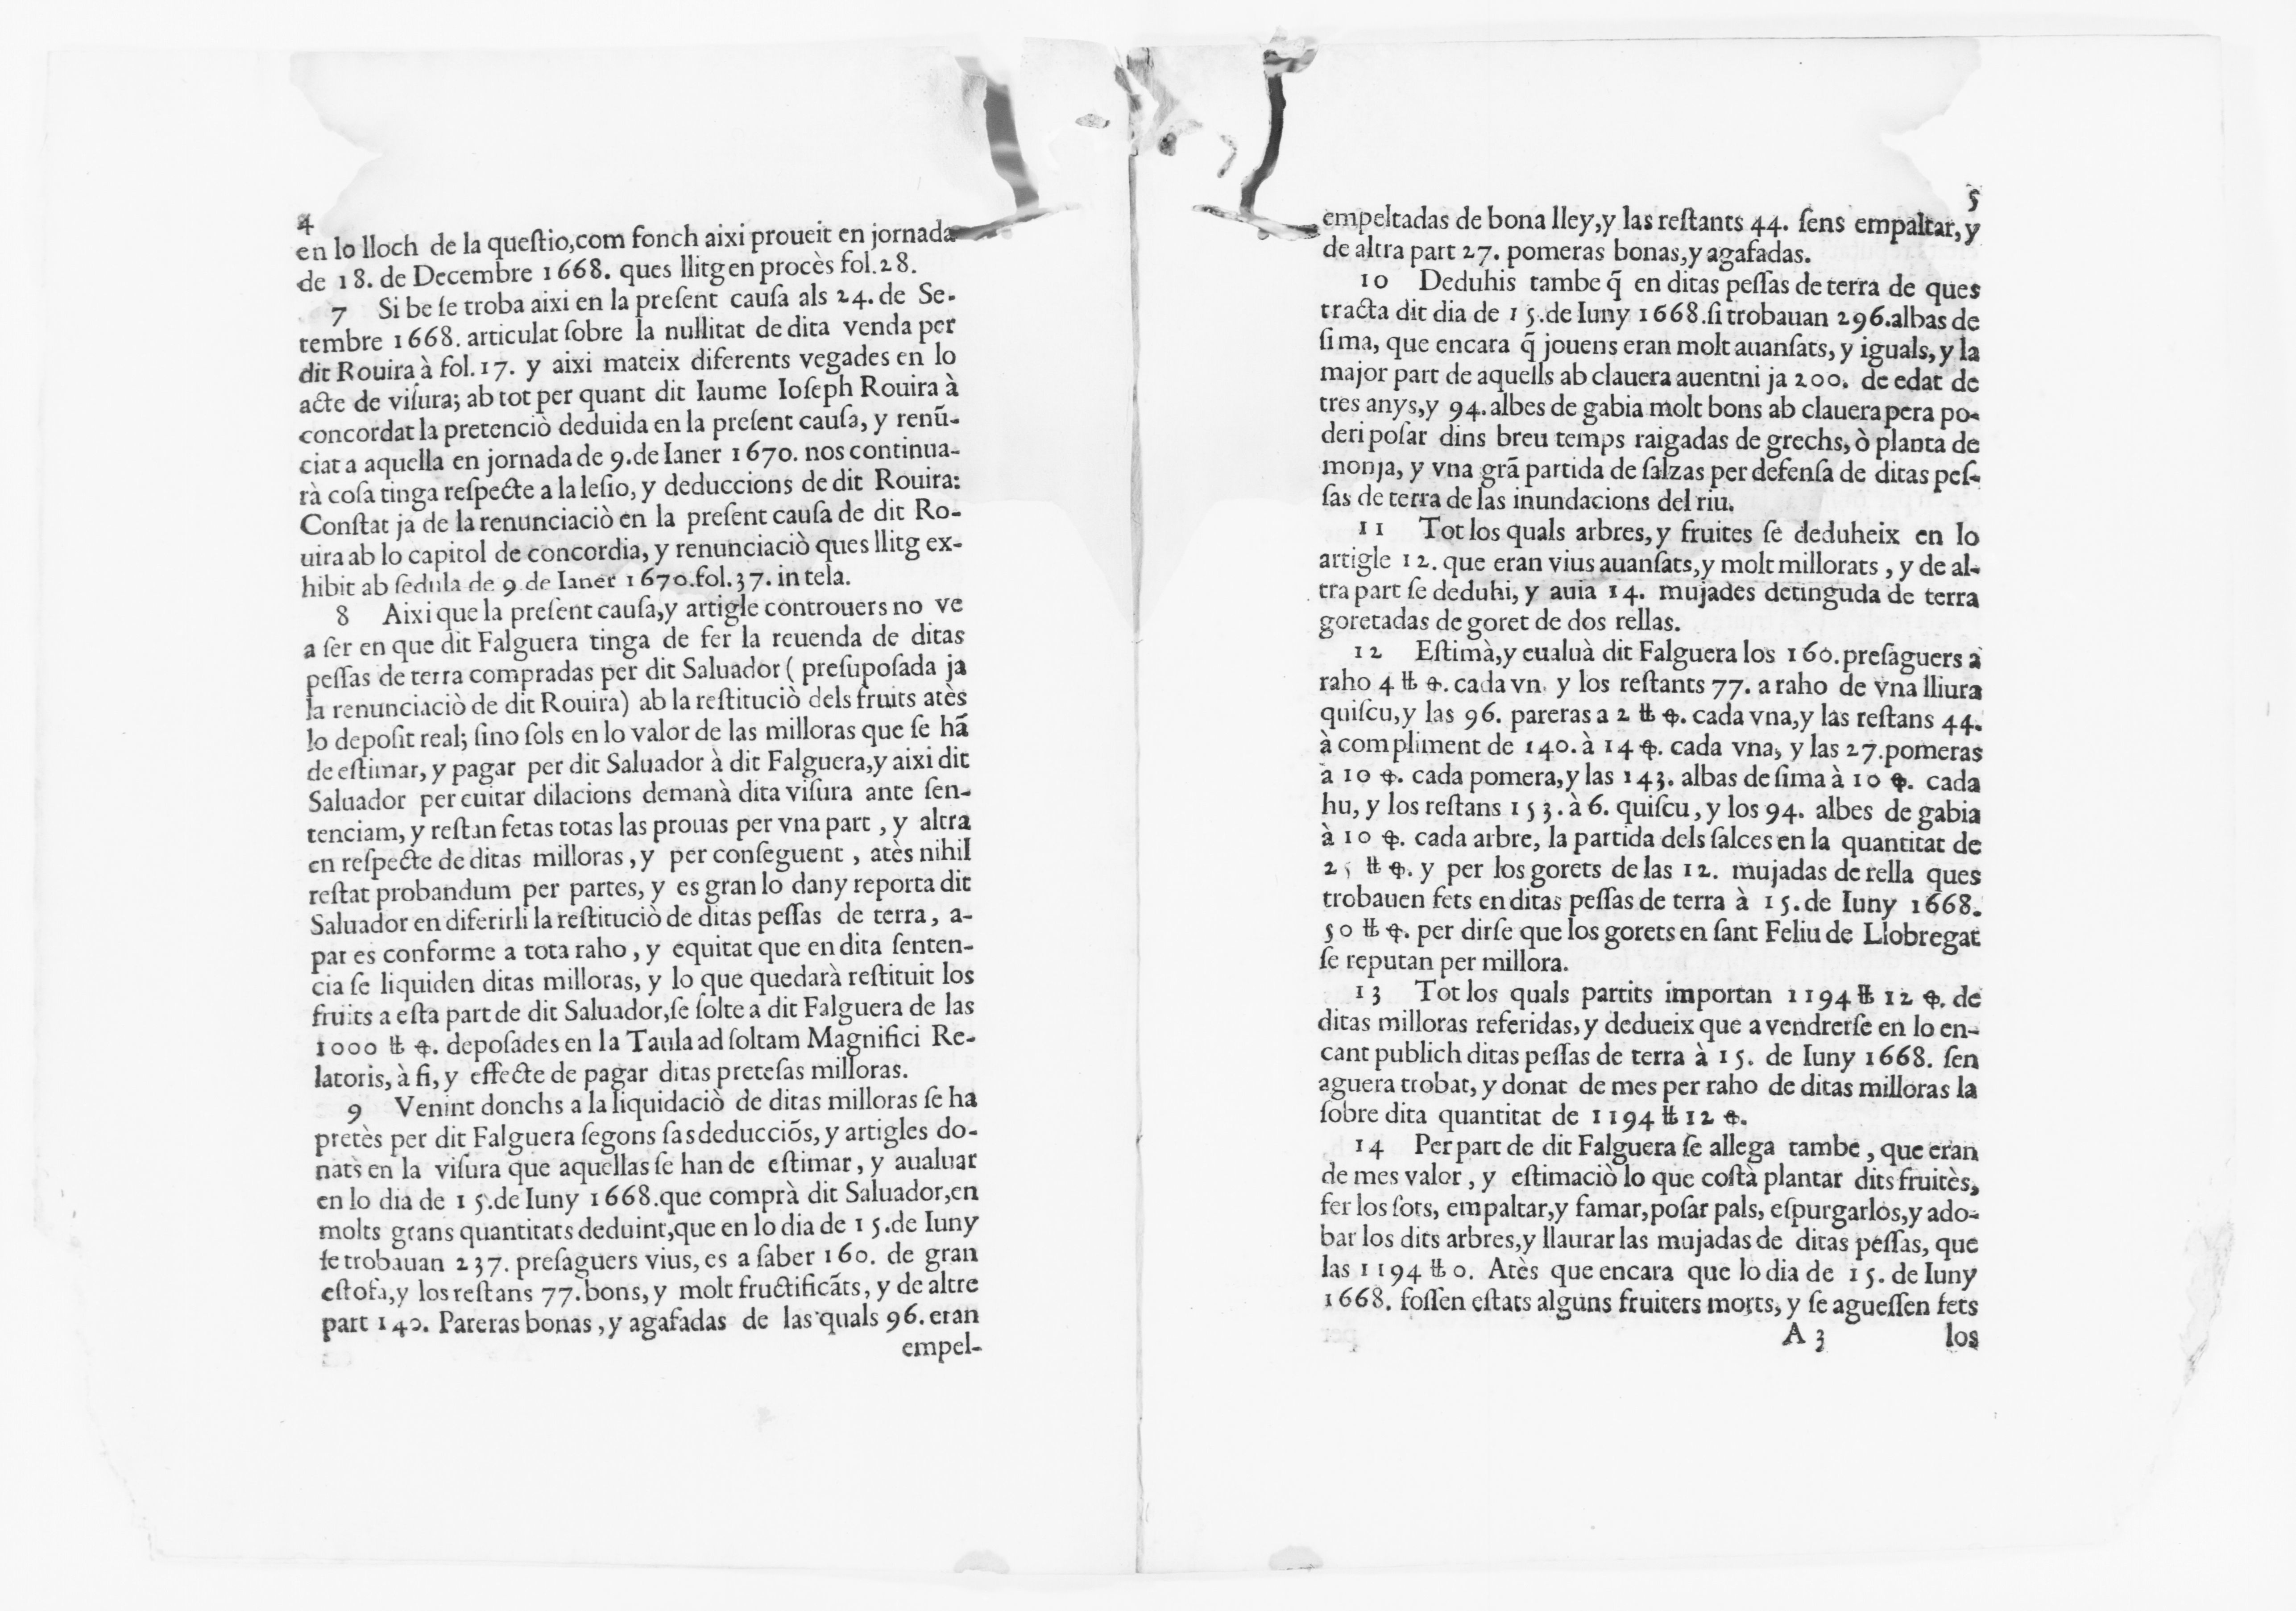 4
en lo lloch de la queſtio,com fonch aixi proueit en jornada
de 18. de Decembre 1668. ques llitg en procès fol.28.
7 Si be ſe troba aixi en la preſent cauſa als 24. de Se-
tembre 1668. articulat ſobre la nullitat de dita venda per
dit Rouira à fol.17. y aixi mateix diferents vegades en lo
acte de viſura; ab tot per quant dit Iaume Ioſeph Rouira à
concordat la pretenciò deduida en la preſent cauſa, y renũ-
ciat a aquella en jornada de 9.de Ianer 1670. nos continua-
rà coſa tinga reſpecte a la leſio, y deduccions de dit Rouira:
Conſtat ja de la renunciaciò en la preſent cauſa de dit Ro-
uira ab lo capitol de concordia, y renunciaciò ques llitg ex-
hibit ab ſedula de 9.de Ianer 1670.fol.37. in tela.
8 Aixi que la preſent cauſa,y artigle controuers no ve
a ſer en que dit Falguera tinga de fer la reuenda de ditas
peſſas de terra compradas per dit Saluador ( preſupoſada ja
la renunciaciò de dit Rouira) ab la reſtituciò dels fruits atès
lo depoſit real; ſino ſols en lo valor de las milloras que ſe hã
de eſtimar, y pagar per dit Saluador à dit Falguera,y aixi dit
Saluador per euitar dilacions demanà dita viſura ante ſen-
tenciam, y reſtan fetas totas las prouas per vna part , y altra
en reſpecte de ditas milloras , y per conſeguent , atès nihil
reſtat probandum per partes, y es gran lo dany reporta dit
Saluador en diferirli la reſtituciò de ditas peſſas de terra, a-
par es conforme a tota raho , y equitat que en dita ſenten-
cia ſe liquiden ditas milloras, y lo que quedarà reſtituit los
fruits a eſta part de dit Saluador,ſe ſolte a dit Falguera de las
1000 ₶ ꝗ. depoſades en la Taula ad ſoltam Magnifici Re-
latoris, à fi, y effecte de pagar ditas preteſas milloras.
9 Venint donchs a la liquidaciò de ditas milloras ſe ha
pretès per dit Falguera ſegons ſas deducciõs, y artigles do-
nats en la viſura que aquellas ſe han de eſtimar, y aualuar
en lo dia de 15.de Iuny 1668.que comprà dit Saluador,en
molts grans quantitats deduint,que en lo dia de 15.de Iuny
ſe trobauan 237. preſaguers vius, es a ſaber 160. de gran
eſtofa,y los reſtans 77.bons,y molt fructificãts, y de altre
part 140. Pareras bonas ,y agafadas de las quals 96. eran
empel-
5
empeltadas de bona lley,y las reſtants 44. ſens empaltar, y
de altra part 27. pomeras bonas,y agafadas.
10 Deduhis tambe q̃ en ditas peſſas de terra de ques
tracta dit dia de 15.de Iuny 1668.ſi trobauan 296.albas de
ſima, que encara q̃ jouens eran molt auanſats, y iguals, y la
major part de aquells ab clauera auentni ja 200. de edat de
tres anys,y 94.albes de gabia molt bons ab clauera pera po-
deri poſar dins breu temps raigadas de grechs, ò planta de
monja, y vna grã partida de ſalzas per defenſa de ditas peſ-
ſas de terra de las inundacions del riu.
11 Tot los quals arbres, y fruites ſe deduheix en lo
artigle 12. que eran vius auanſats,y molt millorats , y de al-
tra part ſe deduhi, y auia 14. mujades detinguda de terra
goretadas de goret de dos rellas.
12 Eſtimà,y eualuà dit Falguera los 160.preſaguers a
raho 4 ₶ ꝗ. cada vn. y los reſtants 77. a raho de vna lliura
quiſcu,y las 96. pareras a 2 ₶ ꝗ. cada vna,y las reſtans 44.
à compliment de 140. à 14 ꝗ. cada vna, y las 27.pomeras
a 10 ꝗ. cada pomera,y las 143. albas de ſima à 10 ꝗ. cada
hu, y los reſtans 153. à 6. quiſcu, y los 94. albes de gabia
à 10 ꝗ. cada arbre, la partida dels ſalces en la quantitat de
25 ₶ ꝗ. y per los gorets de las 12. mujadas de rella ques
trobauen fets en ditas peſſas de terra à 15.de Iuny 1668.
50 ₶ ꝗ. per dirſe que los gorets en ſant Feliu de Llobregat
ſe reputan per millora.
13 Tot los quals partits importan 1194 ₶ 12 ꝗ. de
ditas milloras referidas, y dedueix que a vendrerſe en lo en-
cant publich ditas peſſas de terra à 15. de Iuny 1668. ſen
aguera trobat, y donat de mes per raho de ditas milloras la
ſobre dita quantitat de 1194 ₶ 12 ꝗ.
14 Per part de dit Falguera ſe allega tambe , que eran
de mes valor , y eſtimaciò lo que coſtà plantar dits fruitès,
fer los ſots, empaltar,y famar,poſar pals, eſpurgarlos,y ado-
bar los dits arbres,y llaurar las mujadas de ditas peſſas, que
las 1194 ₶ 0. Atès que encara que lo dia de 15. de Iuny
1668. foſſen eſtats alguns fruiters morts, y ſe agueſſen fets
A 3 los